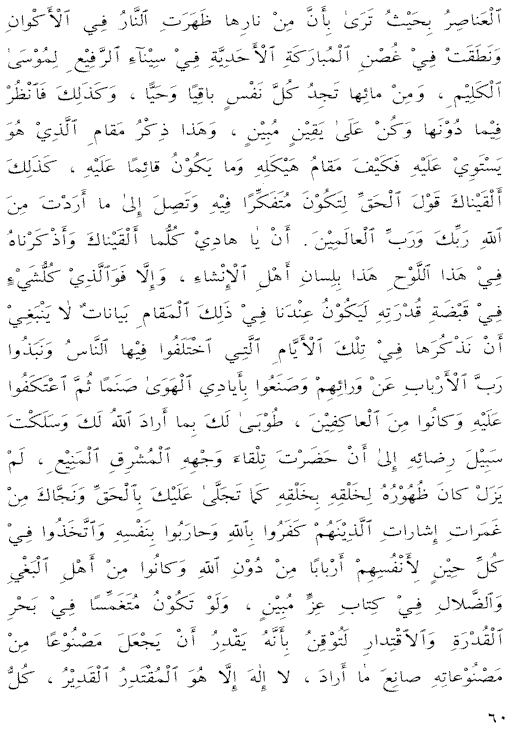 ٱلْعَناصِرُ بِحَيْثُ تَرَىٰ بِأَنَّ مِنْ نارِها ظَهَرَتِ ٱلنَّارُ فِي ٱلْأَكْوانِ
وَنَطَقَتْ فِيْ غُصْنِ ٱلْمُبارَكَةِ ٱلْأَحَدِيَّةِ فِيْ سِيْنآءِ ٱلرَّفِيْعِ لِمُوْسَىٰ
ٱلْكَلِيْمِ ، وَمِنْ مائِها تَجِدُ كُلَّ نَفْسٍ باقِيًا وَحَيًّا ، وَكَذلِكَ فَٱنْظُرْ
فِيما دُوْنَها وَكُنْ عَلَىٰ يَقِيْنٍ مُبِيْنٍ ، وَهَذا ذِكْرُ مَقامِ ٱلَّذِيْ هُوَ
يَسْتَوِيْ عَلَيْهِ فَكَيْفَ مَقامُ هَيْكَلِهِ وَما يَكُوْنُ قائِمًا عَلَيْهِ ، كَذَلِكَ
أَلْقَيْناكَ قَوْلَ ٱلْحَقِّ لِتَكُوْنَ مُتَفَكِّرًا فِيْهِ وَتَصِلَ إِلىٰ ما أَرَدْتَ مِنَ
ٱللهِ رَبِّكَ وَرَبِّ ٱلْعالَمِيْنَ. أَنْ يٰا هادِيْ كُلَّما أَلْقَيْناكَ وَأَذْكَرْناهُ
فِيْ هَذا ٱللَّوْحِ هَذا بِلِسانِ أَهْلِ ٱلْإِنْشاءِ ، وَإِلَّا فَوَٱلَّذِيْ كُلُّشَيْءٍ
فِيْ قَبْضَةِ قُدْرَتِهِ لَيَكُوْنُ عِنْدَنا فِيْ ذَلِكَ ٱلْمَقامِ بَيانات ٌ لا يَنْبَغِيْ
أَنْ نَذْكُرَها فِيْ تِلْكَ ٱلْأَيَّامِ ٱلَّتِي ٱخْتَلَفُوا فِيْها ٱلنَّاسُ وَنَبَذُوا
رَبَّ ٱلْأَرْبابِ عَنْ وَرائِهِمْ وَصَنَعُوا بِأَيادِي ٱلْهَوَىٰ صَنَمًا ثُمَّ ٱعْتَكَفُوا
عَلَيْهِ وَكانُوا مِنَ ٱلْعاكِفِيْنَ ، طُوْبَىٰ لَكَ بِما أَرادَ ٱللهُ لَكَ وَسَلَكْتَ
سَبِيْلَ رِضائِهِ إِلىٰ أَنْ حَضَرْتَ تِلْقاءَ وَجْهِهِ ٱلْمُشْرِقِ ٱلْمَنِيْعِ ، لَمْ
يَزَلْ كانَ ظُهُوْرُهُ لِخَلْقِهِ بِخَلْقِهِ كَما تَجَلَّىٰ عَلَيْكَ بِٱلْحَقِّ وَنَجَّاكَ مِنْ
غَمَراتِ إِشاراتِ ٱلَّذِيْنَهُمْ كَفَرُوا بِٱللهِ وَحارَبُوا بِنَفْسِهِ وَٱتَّخَذُوا فِيْ
كُلِّ حِيْنٍ لِأَنْفُسِهِمْ أَرْبابًا مِنْ دُوْنِ ٱللهِ وَكانُوا مِنْ أَهْلِ ٱلْبَغْيِ
وَٱلضَّلالِ فِيْ كِتابِ عِزٍّ مُبِيْنٍ ، وَلَوْ تَكُوْنُ مُتَغَمِّسًا فِيْ بَحْرِ
ٱلْقُدْرَةِ وَٱلْاقْتِدارِ لَتُوْقِنُ بِأَنَّهُ يَقْدِرُ أَنْ يَجْعَلَ مَصْنُوْعًا مِنْ
مَصْنُوْعاتِهِ صانِعَ مٰا أَرادَ ، لا إِلٰهَ إِلَّا هُوَ ٱلْمُقْتَدِرُ ٱلْقَدِيْرُ ، كُلُّ
٦٠